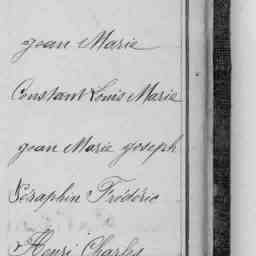 jean Marie
Constant Louis Marie
jean Marie joseph
Séraphin Frédéric
Henri Charles